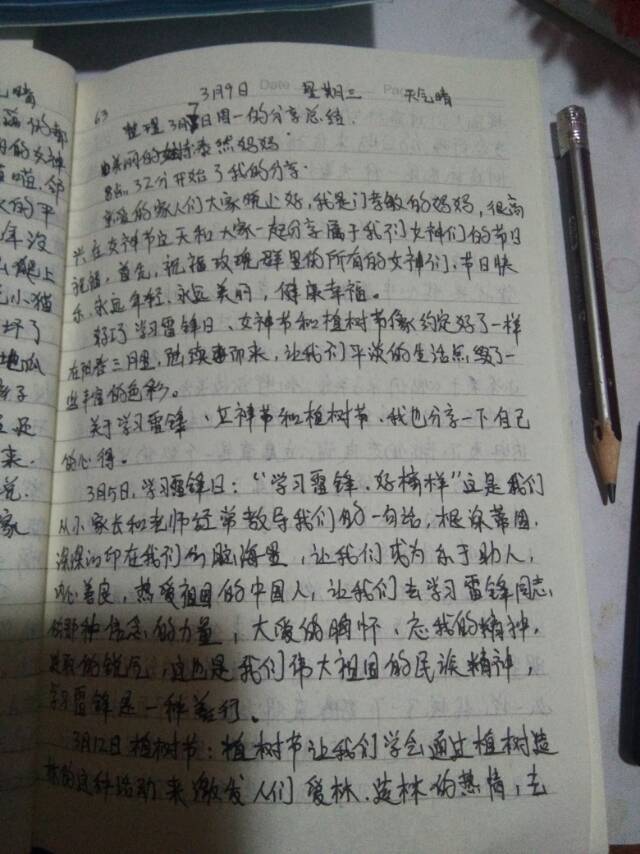 3月9日 Date 星期三 Pag 天气晴
63
整理3月7日周一的分享总结.
由美丽的泰然妈妈
8点32分开始了我的分享.
亲爱的家人们大家晚上好,我是门李敏的妈妈,很高
兴在女神节这天和大家一起分享属于我们女神们的节日
祝福,首先,祝福玫瑰群里的所有的女神们,节日快
乐、永远年轻、永远美丽,健康幸福。
好巧 学习雷锋日、女神节和植树节像约定好了一样
在阳春三月里,陆续而来,让我们平淡的生活点缀了一
些丰富的色彩。
关于学习雷锋、女神节和植树节、我也分享一下自己
的心得。
3月5日,学习雷锋日:“学习雷锋、好榜样”这是我们
从小家长和老师经常教导我们的一句话,根深蒂固,
深深的印在我们的脑海里,让我们成为乐于助人,
内心善良,热爱祖国的中国人,让我们去学习雷锋同志
的那种信念的力量,大爱的胸怀、忘我的精神,
进取的锐气,这也是我们伟大祖国的民族精神,
学习雷锋是一种善行。
3月12日 植树节:植树节让我们学会通过植树造
林的这种活动 来激发人们 爱林、造林的热情,去
天气晴
的女神
的平
年没
爬上
小猫
坏了
地瓜
来.
说.
家